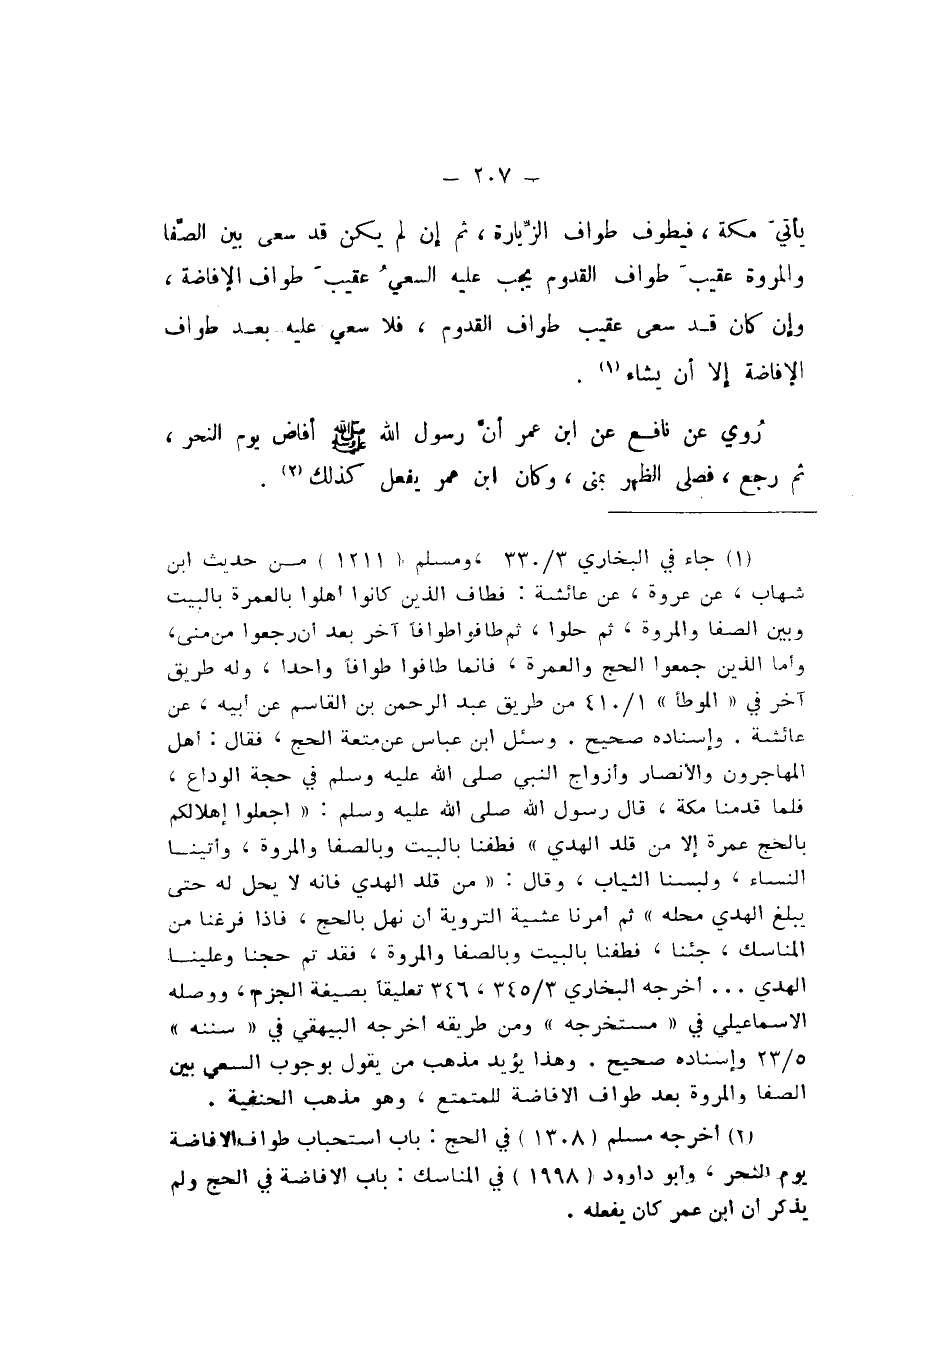 — ٢٠٧ —
يأتيَ مكة ، فيطوف طواف الزِّيارة ، ثم إن لم يكن قد سعى بين الصَّفا
والمروة عقيبَ طواف القدوم يجب عليه السعيُ عقيبَ طواف الإفاضة ،
وإن كان قد سعى عقيب طواف القدوم ، فلا سعي عليه بعد طواف
الإفاضة إلا أن يشاء (١) .
رُوي عن نافع عن ابن عمر أنَّ رسول الله ﷺ أفاض يوم النحر ،
ثم رجع ، فصلى الظهر بمنى ، وكان ابن عمر يفعل كذلك (٢) .
(١) جاء في البخاري ٣٣٠/٣ ، ومسلم ( ١٢١١ ) من حديث ابن
شهاب ، عن عروة ، عن عائشة : فطاف الذين كانوا أهلوا بالعمرة بالبيت
وبين الصفا والمروة ، ثم حلوا ، ثم طافوا طوافاً آخر بعد أن رجعوا من منى،
وأما الذين جمعوا الحج والعمرة ، فانما طافوا طوافاً واحدا ، وله طريق
آخر في « الموطأ » ٤١٠/١ من طريق عبد الرحمن بن القاسم عن أبيه ، عن
عائشة . وإسناده صحيح . وسئل ابن عباس عن متعة الحج ، فقال : أهل
المهاجرون والأنصار وأزواج النبي صلى الله عليه وسلم في حجة الوداع ،
فلما قدمنا مكة ، قال رسول الله صلى الله عليه وسلم : « اجعلوا إهلالكم
بالحج عمرة إلا من قلد الهدي » فطفنا بالبيت وبالصفا والمروة ، وأتينا
النساء ، ولبسنا الثياب ، وقال : « من قلد الهدي فانه لا يحل له حتى
يبلغ الهدي محله » ثم أمرنا عشية التروية أن نهل بالحج ، فاذا فرغنا من
المناسك ، جئنا ، فطفنا بالبيت وبالصفا والمروة ، فقد تم حجنا وعلينا
الهدي ... أخرجه البخاري ٣٤٥/٣ ، ٣٤٦ تعليقاً بصيغة الجزم ، ووصله
الاسماعيلي في « مستخرجه » ومن طريقه أخرجه البيهقي في « سننه »
٢٣/٥ وإسناده صحيح . وهذا يؤيد مذهب من يقول بوجوب السعي بين
الصفا والمروة بعد طواف الافاضة للمتمتع ، وهو مذهب الحنفية .
(٢) أخرجه مسلم ( ١٣٠٨ ) في الحج : باب استحباب طواف الافاضة
يوم النحر ، وأبو داوود ( ١٩٩٨ ) في المناسك : باب الافاضة في الحج ولم
يذكر أن ابن عمر كان يفعله .